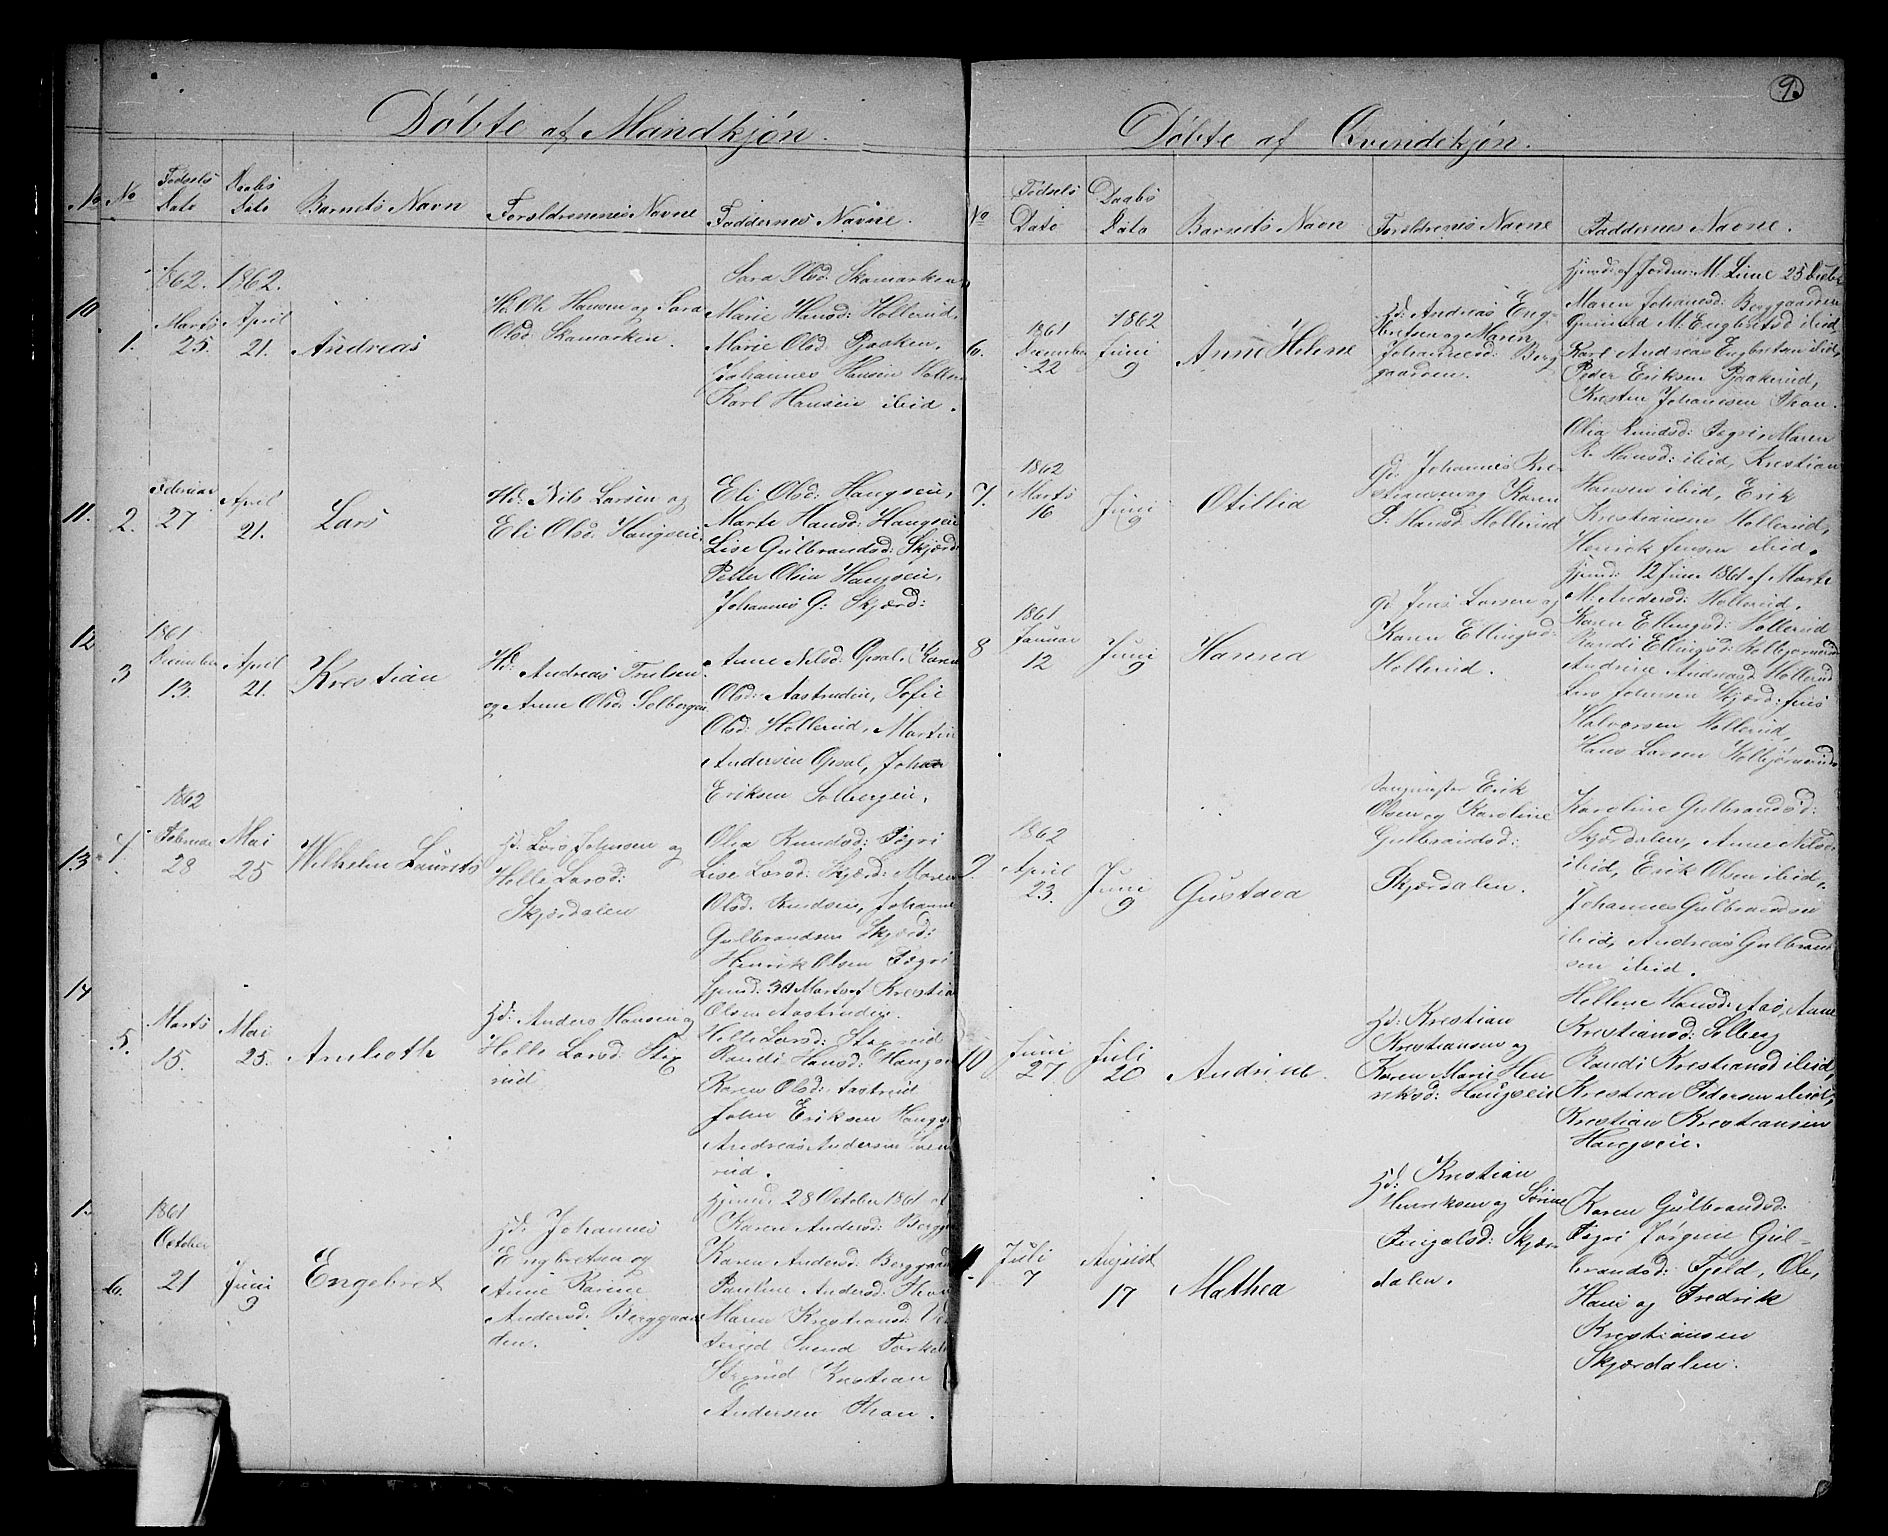 Døbte af Mandkjøn.
No
Fødsels Date
Daabs Date
Barnets Navn
Forældrenes Navne
Faddernes Navne.
1862. 1862.
1.
Marts 25.
April 21.
Andreas
Ole Hansen og Sara
Olsd. Skamarken.
Sara Olsd: Skamarken
Marie Hansd: Hollerud,
Marie Olsd.
Johannes Hansen
Karl Hansen ibid.
2.
Februar 27
April 21.
Lars
Hd: Nils Larsen og
Eli Olsd. Haugseie
Eli Olsd: Haugseie,
Marte Hansd: Haugseie
Lise Gulbrandsd: Skjærd:
Petter Olsen Haugseie,
Johannes G: Skjærd:
3
1861
December 13.
April 21.
Krestian
Hd: Andreas Trulsen
og Anne Olsd. Solbergeie
Anne Nilsd: Opsal, Karen
Olsd: Aastrudeie, Sofie
Olsd: Hollerud, Martin
Andersen Opsal, Johan
Eriksen Solbergeie.
4.
1862
Februar 28
Mai 25
Wilhelm Laurits
Hd: Lars Johnsen og
Helle Larsd:
Skjærdalen
Olia Knudsd: Fegri
Lise Larsd: Skjærd: Maren
Olsd. Knudseie, Johannes
Gulbrandsen Skjærd:
Henrik Olsen Fegri
5.
Marts 15.
Mai 25.
Amboth
Hd: Anders Hansen og
Helle Larsd: Stax
rud
Hjemd: 30 Marts af Krestian
Olsen Aastrudeie.
Helle Larsd: Staxrud
Randi Hansd: Haugseie
Karen Olsd: Aastrud
John Eriksen Haugs
Andreas Andersen
rud.
6.
1861
October 21
Juni 9
Engebret
Hd: Johannes
Engbretsen og
Anne Karine
Andersd: Berggaar
den.
Hjemd. 28 October 1861 af
Karen Andersd: Berggaard
Karen Andersd: Berggaard
Pauline Andersd: Thon
Maren Krestiansd:
terud Svend Torkels
Krestian
Andersen Thon.
10
11.
12
13
14
1.
9.
Døbte af Qvindekjøn.
No
Fødsels Date
Daabs Date
Barnets Navn
Forældrenes Navne
Faddernes Navne.
6.
1861
December 22
1862
Juni 9
Anne Helene
Hd: Andreas Eng-
bretsen og Maren
Johannesd: Berg
gaarden.
Hjemd: af Jordm: M. Lune 25 Decbr
Maren Johansd: Berggaarden
Gunild M. Engbretsd ibid,
Karl Andreas Engbretsen ibid,
Peder Eriksen
Kresten Johanesen Thon.
7.
1862
Marts 16
Juni 9
Otillia
Gd: Johannes Kre-
stiansen og Karen
P: Hansd. Hollerud
Olia Knudsd: Fegri, Maren
R. Hansd: ibid, Krestian
Hansen ibid, Erik
Krestiansen Hollerud,
Henrick Jensen ibid.
8
1861
Januar 12
Juni 9
Hanna
Gd: Jens Larsen og
Karen Ellingsd:
Hollerud.
Hjemd: 12 Juni 1861 af Marte
M: Andersd: Hollerud.
Karen Ellingsd: Hollerud
Randi Ellingsd: Kolbjørnsrud
Andrine Andreasd Hollerud
Lars Johnsen Skjærd: Jens
Halvorsen Hollerud,
Hans Larsen Kolbjørnsrud
9.
1862
April 23.
Juni 9
Gustava
Erik
Olsen og Karoline
Gulbrandsd:
Skjærdalen.
Karoline Gulbrandsd:
Skjærdalen, Anne Nilsd:
ibid, Erik Olsen ibid,
Johannes Gulbrandsen
ibid, Andreas Gulbrand-
sen ibid.
10
Juni 27
Juli 20
Andrine.
Hd: Krestian
Krestiansen og
Karen Marie Hen
riksd: Haugseie
Hellene Hansd: Aas, Anne
Krestiansd: Solberg
Randi Krestiansd ibid,
Krestian Pedersen ibid,
Krestian Krestiansen
Haugseie.
Juli 7
August 17
Mathea
Hd: Krestian
Henriksen og Sørine
Fingalsd: Skjær
dalen.
Karen Gulbrandsd:
Fegri Jørgine Gul-
brandsd: Fjeld, Ole,
Hans og Fredrik
Krestiansen
Skjærdalen.